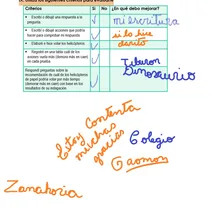 Criterios Si No ¿En qué debo mejorar?
• Escribo o dibujo una respuesta a la pregunta.
mi escritura
• Escribo y dibujo acciones que podría hacer para comprobar mi respuesta
si lo hise
• Elaboro a fase volar los helicópteros.
• Registro en una tabla cuál de los aviones vuela más (demora más en caer) en cada prueba
Tiburon
Dinosaurio
Respondí preguntas sobre la
helicópteros
de papel podría volar por más tiempo
(demorar más en caer) en base en los
resultados de su indagación.
Estoy Contenta
muchas
gracias
Colegio
Gaomon
Zanahoria